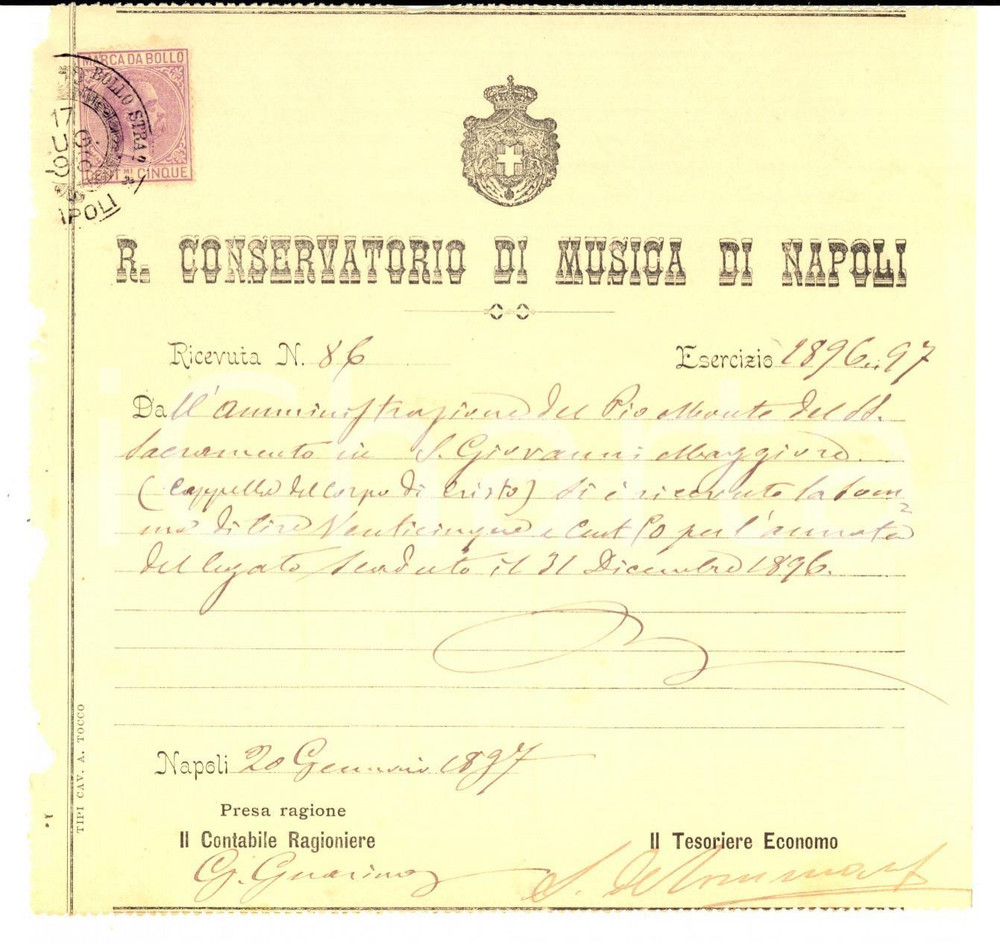 MARCA DA BOLLO
BOLLO STRA
17
96
CENT.MI CINQUE
R. CONSERVATORIO DI MUSICA DI NAPOLI
Ricevuta N. 86
Esercizio 1896 97
Dall'Amministrazione del Pio Monte del SS.
Sacramento in S. Giovanni Maggiore.
(Cappella del Corpo di Cristo) Si è ricevuto la som
ma di lire Venticinque e Cent 50 per l'annata
del legato scaduto il 31 Dicembre 1896.
Napoli 20 Gennaio 1897
Presa ragione
Il Contabile Ragioniere
Il Tesoriere Economo
G. Guarino
TIPI CAV. A. TOCCO